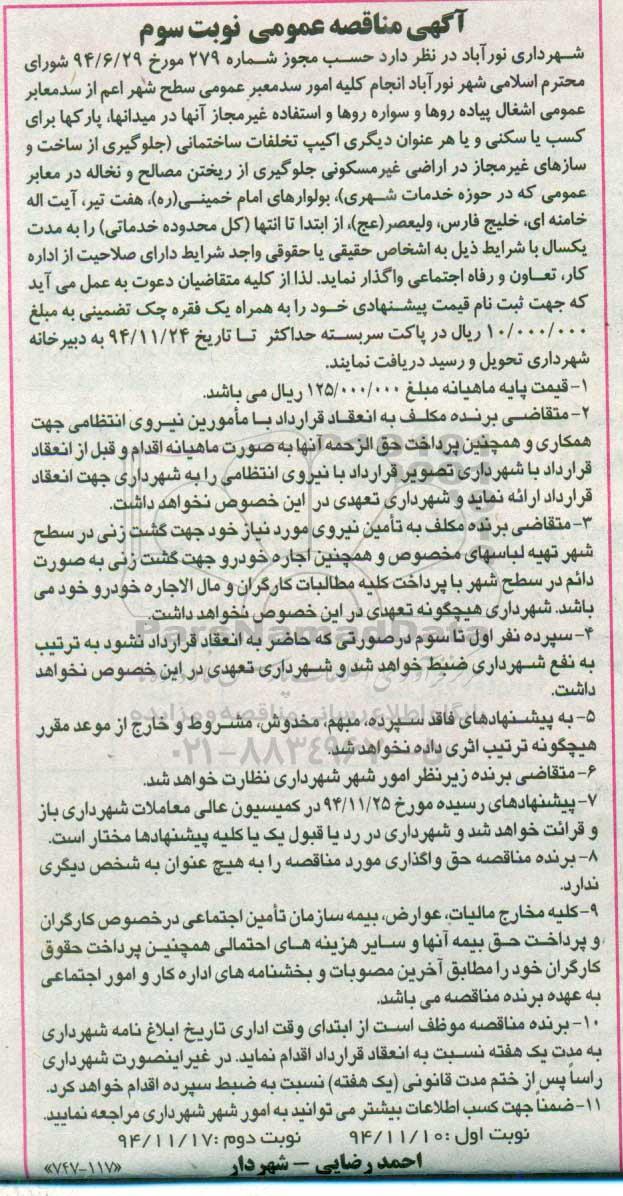 آگهی مناقصه عمومی نوبت سوم
شهرداری نورآباد در نظر دارد حسب مجوز شماره ۲۷۹ مورخ ۹۴/۶/۲۹ شورای
محترم اسلامی شهر نورآباد انجام کلیه امور سدمعبر عمومی سطح شهر اعم از سدمعابر
عمومی اشغال پیاده روها و سواره روها و استفاده غیرمجاز آنها در میدانها، پارکها برای
کسب یا سکنی و یا هر عنوان دیگری اکیپ تخلفات ساختمانی (جلوگیری از ساخت و
سازهای غیرمجاز در اراضی غیرمسکونی جلوگیری از ریختن مصالح و نخاله در معابر
عمومی که در حوزه خدمات شهری)، بولوارهای امام خمینی(ره)، هفت تیر، آیت اله
خامنه ای، خلیج فارس، ولیعصر(عج)، از ابتدا تا انتها (کل محدوده خدماتی) را به مدت
یکسال با شرایط ذیل به اشخاص حقیقی یا حقوقی واجد شرایط دارای صلاحیت از اداره
کار، تعاون و رفاه اجتماعی واگذار نماید. لذا از کلیه متقاضیان دعوت به عمل می آید
که جهت ثبت نام قیمت پیشنهادی خود را به همراه یک فقره چک تضمینی به مبلغ
۱۰/۰۰۰/۰۰۰ ریال در پاکت سربسته حداکثر تا تاریخ ۹۴/۱۱/۲۴ به دبیرخانه
شهرداری تحویل و رسید دریافت نمایند.
۱- قیمت پایه ماهیانه مبلغ ۱۲۵/۰۰۰/۰۰۰ ریال می باشد.
۲- متقاضی برنده مکلف به انعقاد قرارداد با مأمورین نیروی انتظامی جهت
همکاری و همچنین پرداخت حق الزحمه آنها به صورت ماهیانه اقدام و قبل از انعقاد
قرارداد با شهرداری تصویر قرارداد با نیروی انتظامی را به شهرداری جهت انعقاد
قرارداد ارائه نماید و شهرداری تعهدی در این خصوص نخواهد داشت.
۳- متقاضی برنده مکلف به تأمین نیروی مورد نیاز خود جهت گشت زنی در سطح
شهر تهیه لباسهای مخصوص و همچنین اجاره خودرو جهت گشت زنی به صورت
دائم در سطح شهر با پرداخت کلیه مطالبات کارگران و مال الاجاره خودرو خود می
باشد. شهرداری هیچگونه تعهدی در این خصوص نخواهد داشت.
۴- سپرده نفر اول تا سوم درصورتی که حاضر به انعقاد قرارداد نشود به ترتیب
به نفع شهرداری ضبط خواهد شد و شهرداری تعهدی در این خصوص نخواهد
داشت.
۵- به پیشنهادهای فاقد سپرده، مبهم، مخدوش، مشروط و خارج از موعد مقرر
هیچگونه ترتیب اثری داده نخواهد شد.
۶- متقاضی برنده زیرنظر امور شهر شهرداری نظارت خواهد شد.
۷- پیشنهادهای رسیده مورخ ۹۴/۱۱/۲۵ در کمیسیون عالی معاملات شهرداری باز
و قرائت خواهد شد و شهرداری در رد یا قبول یک یا کلیه پیشنهادها مختار است.
۸- برنده مناقصه حق واگذاری مورد مناقصه را به هیچ عنوان به شخص دیگری
ندارد.
۹- کلیه مخارج مالیات، عوارض، بیمه سازمان تأمین اجتماعی درخصوص کارگران
و پرداخت حق بیمه آنها و سایر هزینه های احتمالی همچنین پرداخت حقوق
کارگران خود را مطابق آخرین مصوبات و بخشنامه های اداره کار و امور اجتماعی
به عهده برنده مناقصه می باشد.
۱۰- برنده مناقصه موظف است از ابتدای وقت اداری تاریخ ابلاغ نامه شهرداری
به مدت یک هفته نسبت به انعقاد قرارداد اقدام نماید. در غیر اینصورت شهرداری
راساً پس از ختم مدت قانونی (یک هفته) نسبت به ضبط سپرده اقدام خواهد کرد.
۱۱- ضمناً جهت کسب اطلاعات بیشتر می توانید به امور شهر شهرداری مراجعه نمایید.
نوبت اول: ۹۴/۱۱/۱۰ نوبت دوم: ۹۴/۱۱/۱۷
احمد رضایی - شهردار
«۷۴۷-۱۱۷»
ParsNamadData
پایگاه اطلاع رسانی مناقصه و مزایده